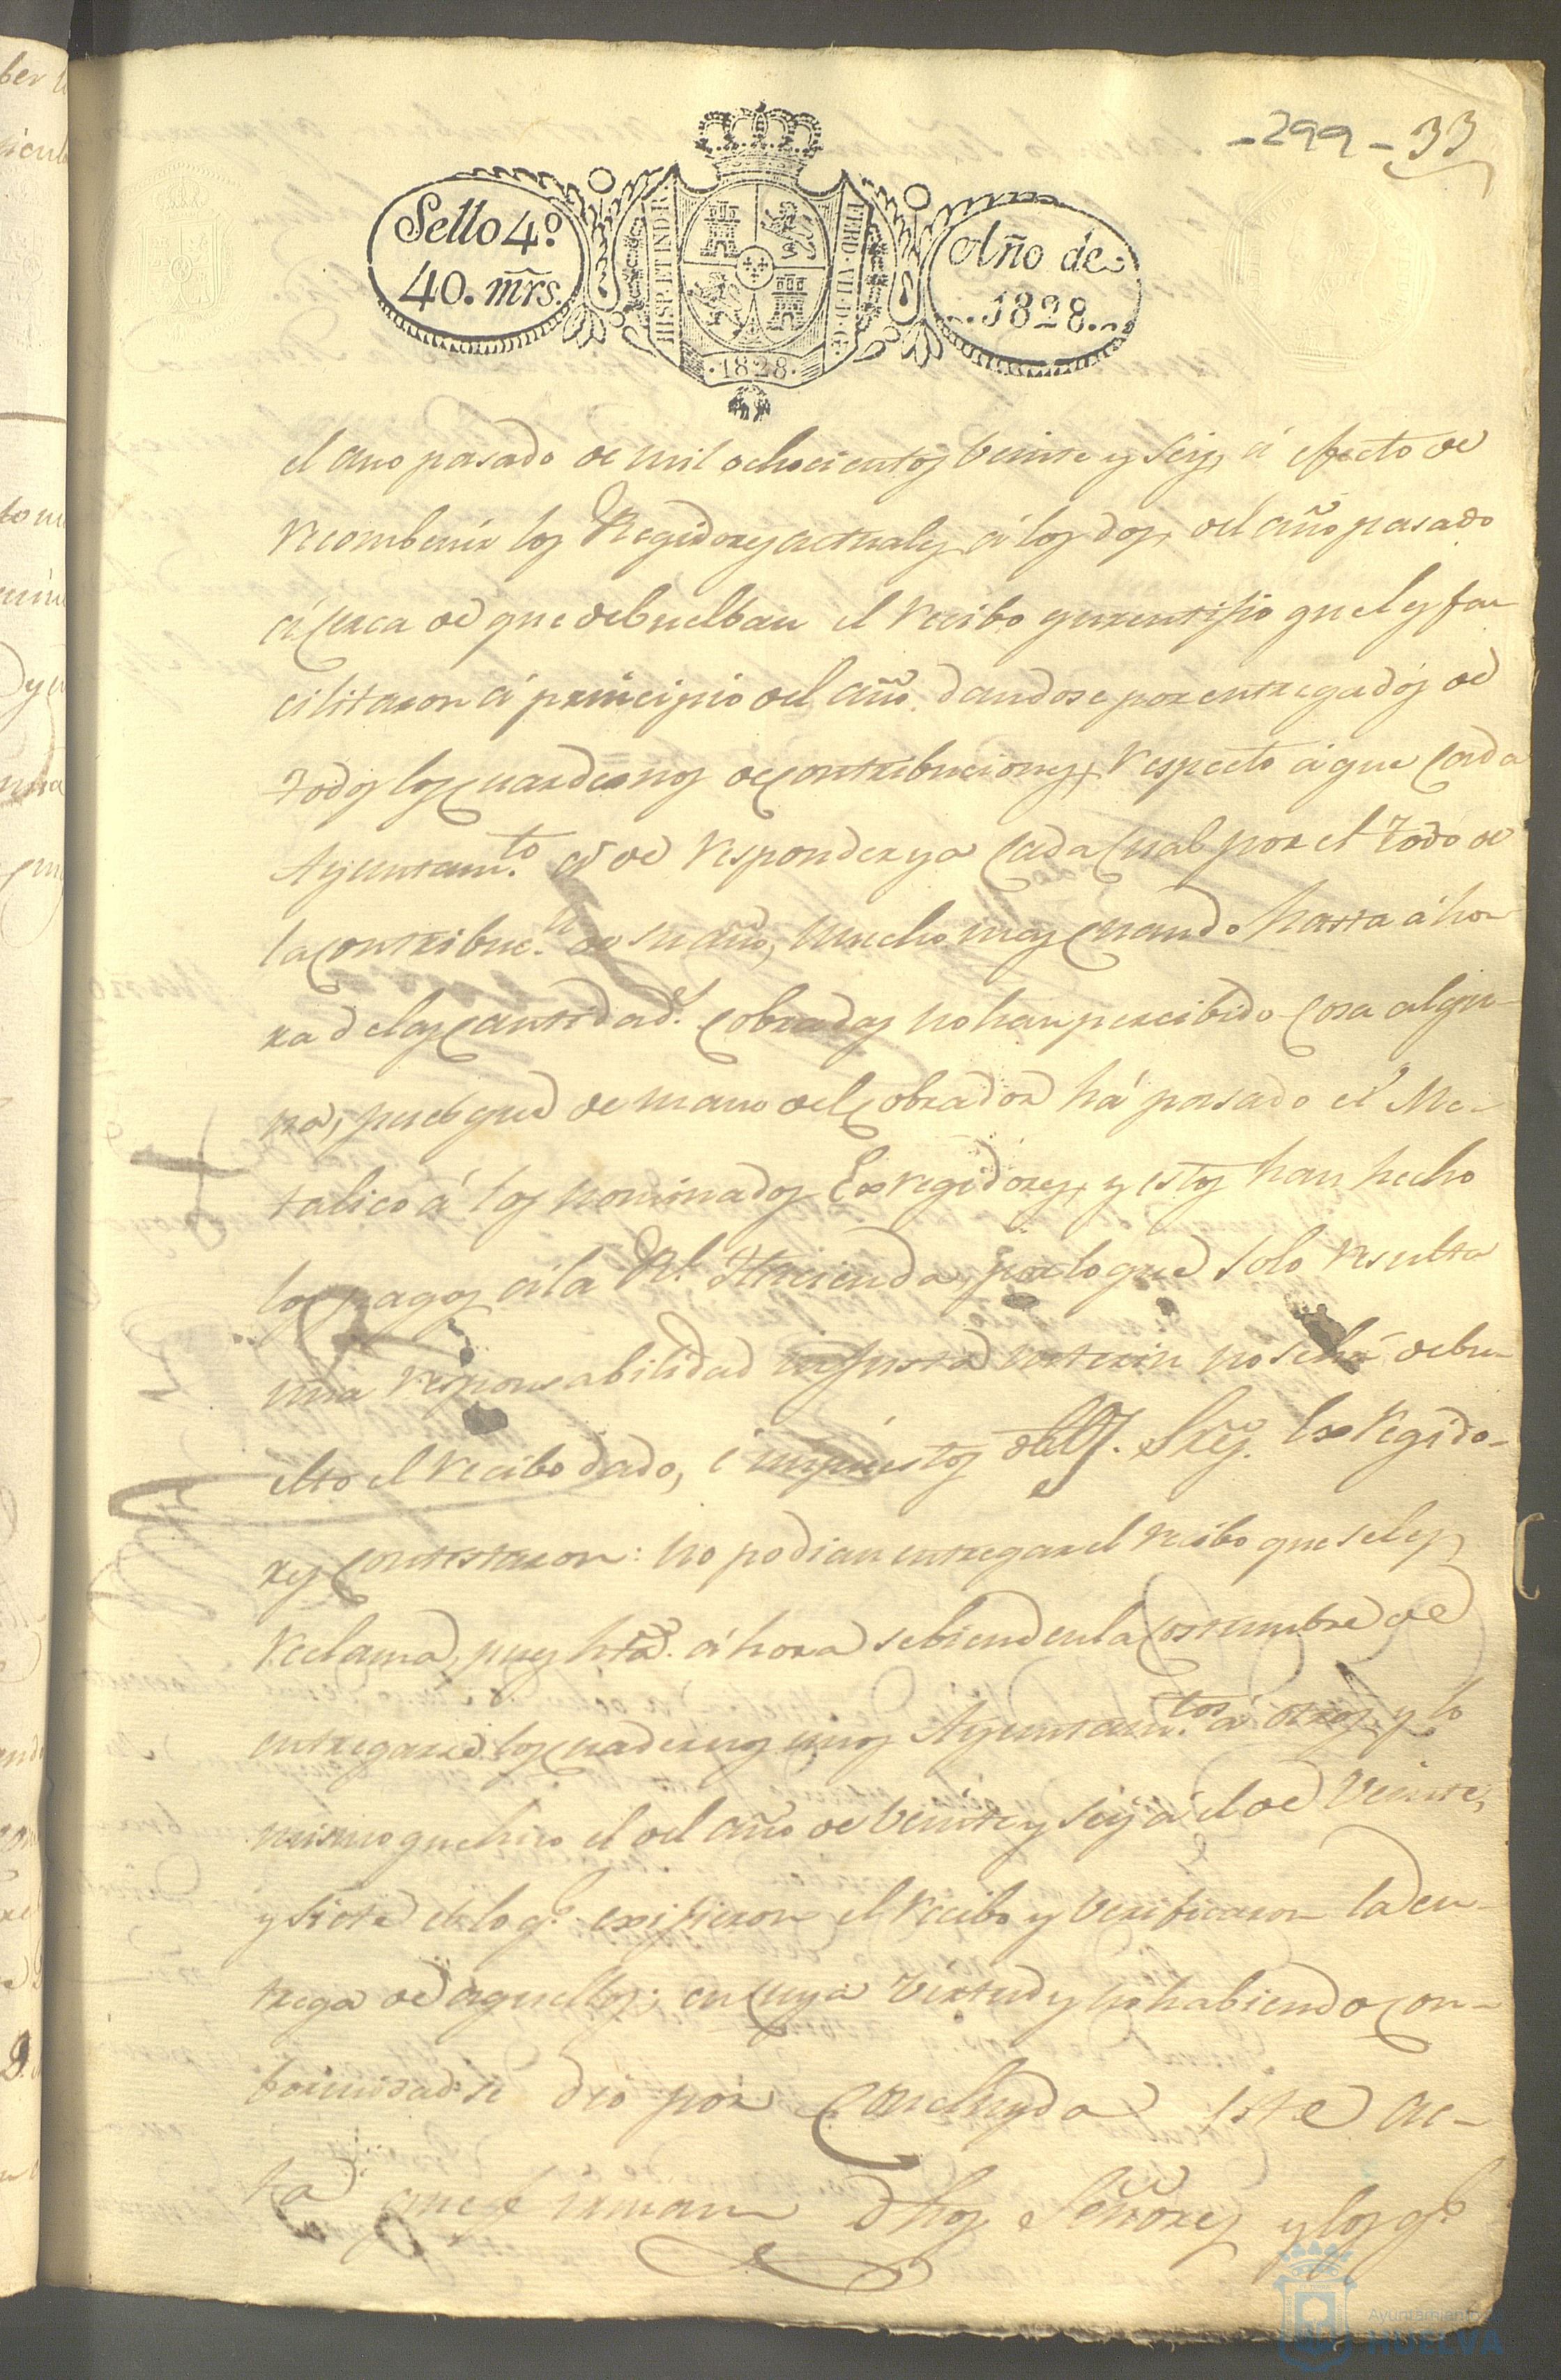 -299- 33
Sello 4º
40. mrs.
HISP. ET IND. R.
FERD. VII. D. G.
1828.
Año de
1828.
el ano pasado de mil ochocientos beinte y seis, á efecto de
recombenir los Regidores actuales á los dos, del año pasado
ácerca de que debuelban el recibo que les fa-
cilitaron á principio del año dandose por entregados de
todos los cuardernos de contribuciones, respecto á que cada
Ayuntam.to á de responder ya cada cual por el todo de
la contribuc.n de su año, mucho mas cuando hasta áho-
ra de las cantidad.s cobradas no han percibido cosa algu-
na, pues que de mano del cobrador há pasado el Me-
talico á los nominados Exregidores, y estos han hecho
los pagos á la R.l Hacienda, por lo que solo resulta
una responsabilidad injusta interin no se há debu-
elto el recibo dado, é impuestos d.hos Sres. Exregido-
res contestaron: no podian entregar el recibo que se les
reclama, pues hta. áhora sebiendo en la costumbre de
entregarse los cuadernos unos Ayuntam.tos á otros, y lo
mismo que hizo el del año de beinte y seis á el de Veinte,
y siete de lo q.e exijieron el recibo y berificaron la en-
trega de aquellos; en cuya virtud y no habiendo con-
benidad se dió por concluyda este ac-
ta que firman dhos Señores y los q.e
Ayuntamiento de
HUELVA